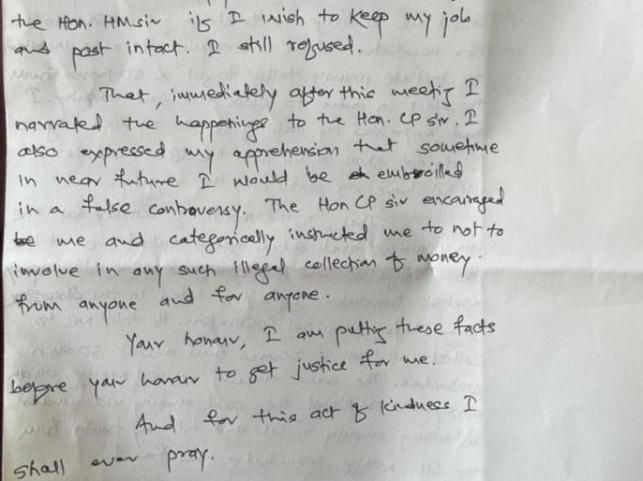 the Hon. HM sir ifs I wish to keep my job
and post intact. I still refused.
That, immediately after this meetig I
narrated the happenings to the Hon. CP sir. I
also expressed my apprehension that sometime
in near future I would be embroilled
in a false controversy. The Hon CP sir encouraged
me and categorically instructed me to not to
involve in any such illegal collection of money
from anyone and for anyone.
Your honour, I am putting these facts
before your honour to get justice for me.
And for this act of kindness I
shall ever pray.